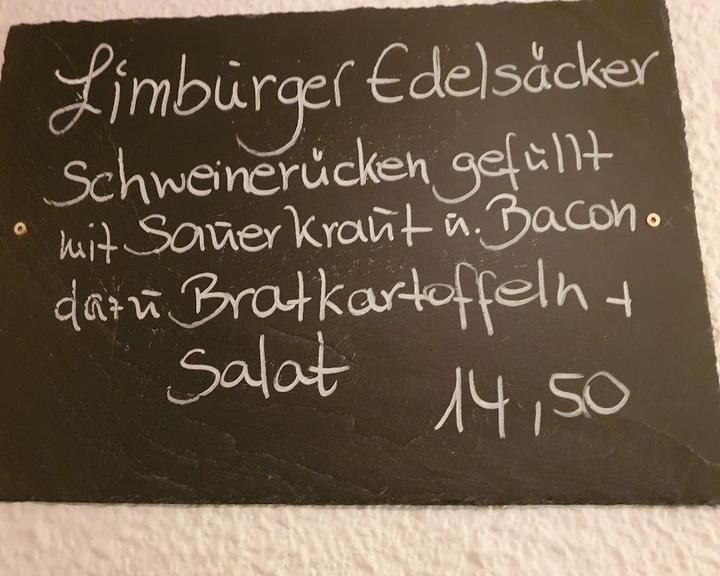 Limburger Edelsäcker
Schweinerücken gefüllt
mit Sauerkraut u. Bacon
dazu Bratkartoffeln +
Salat 14,50